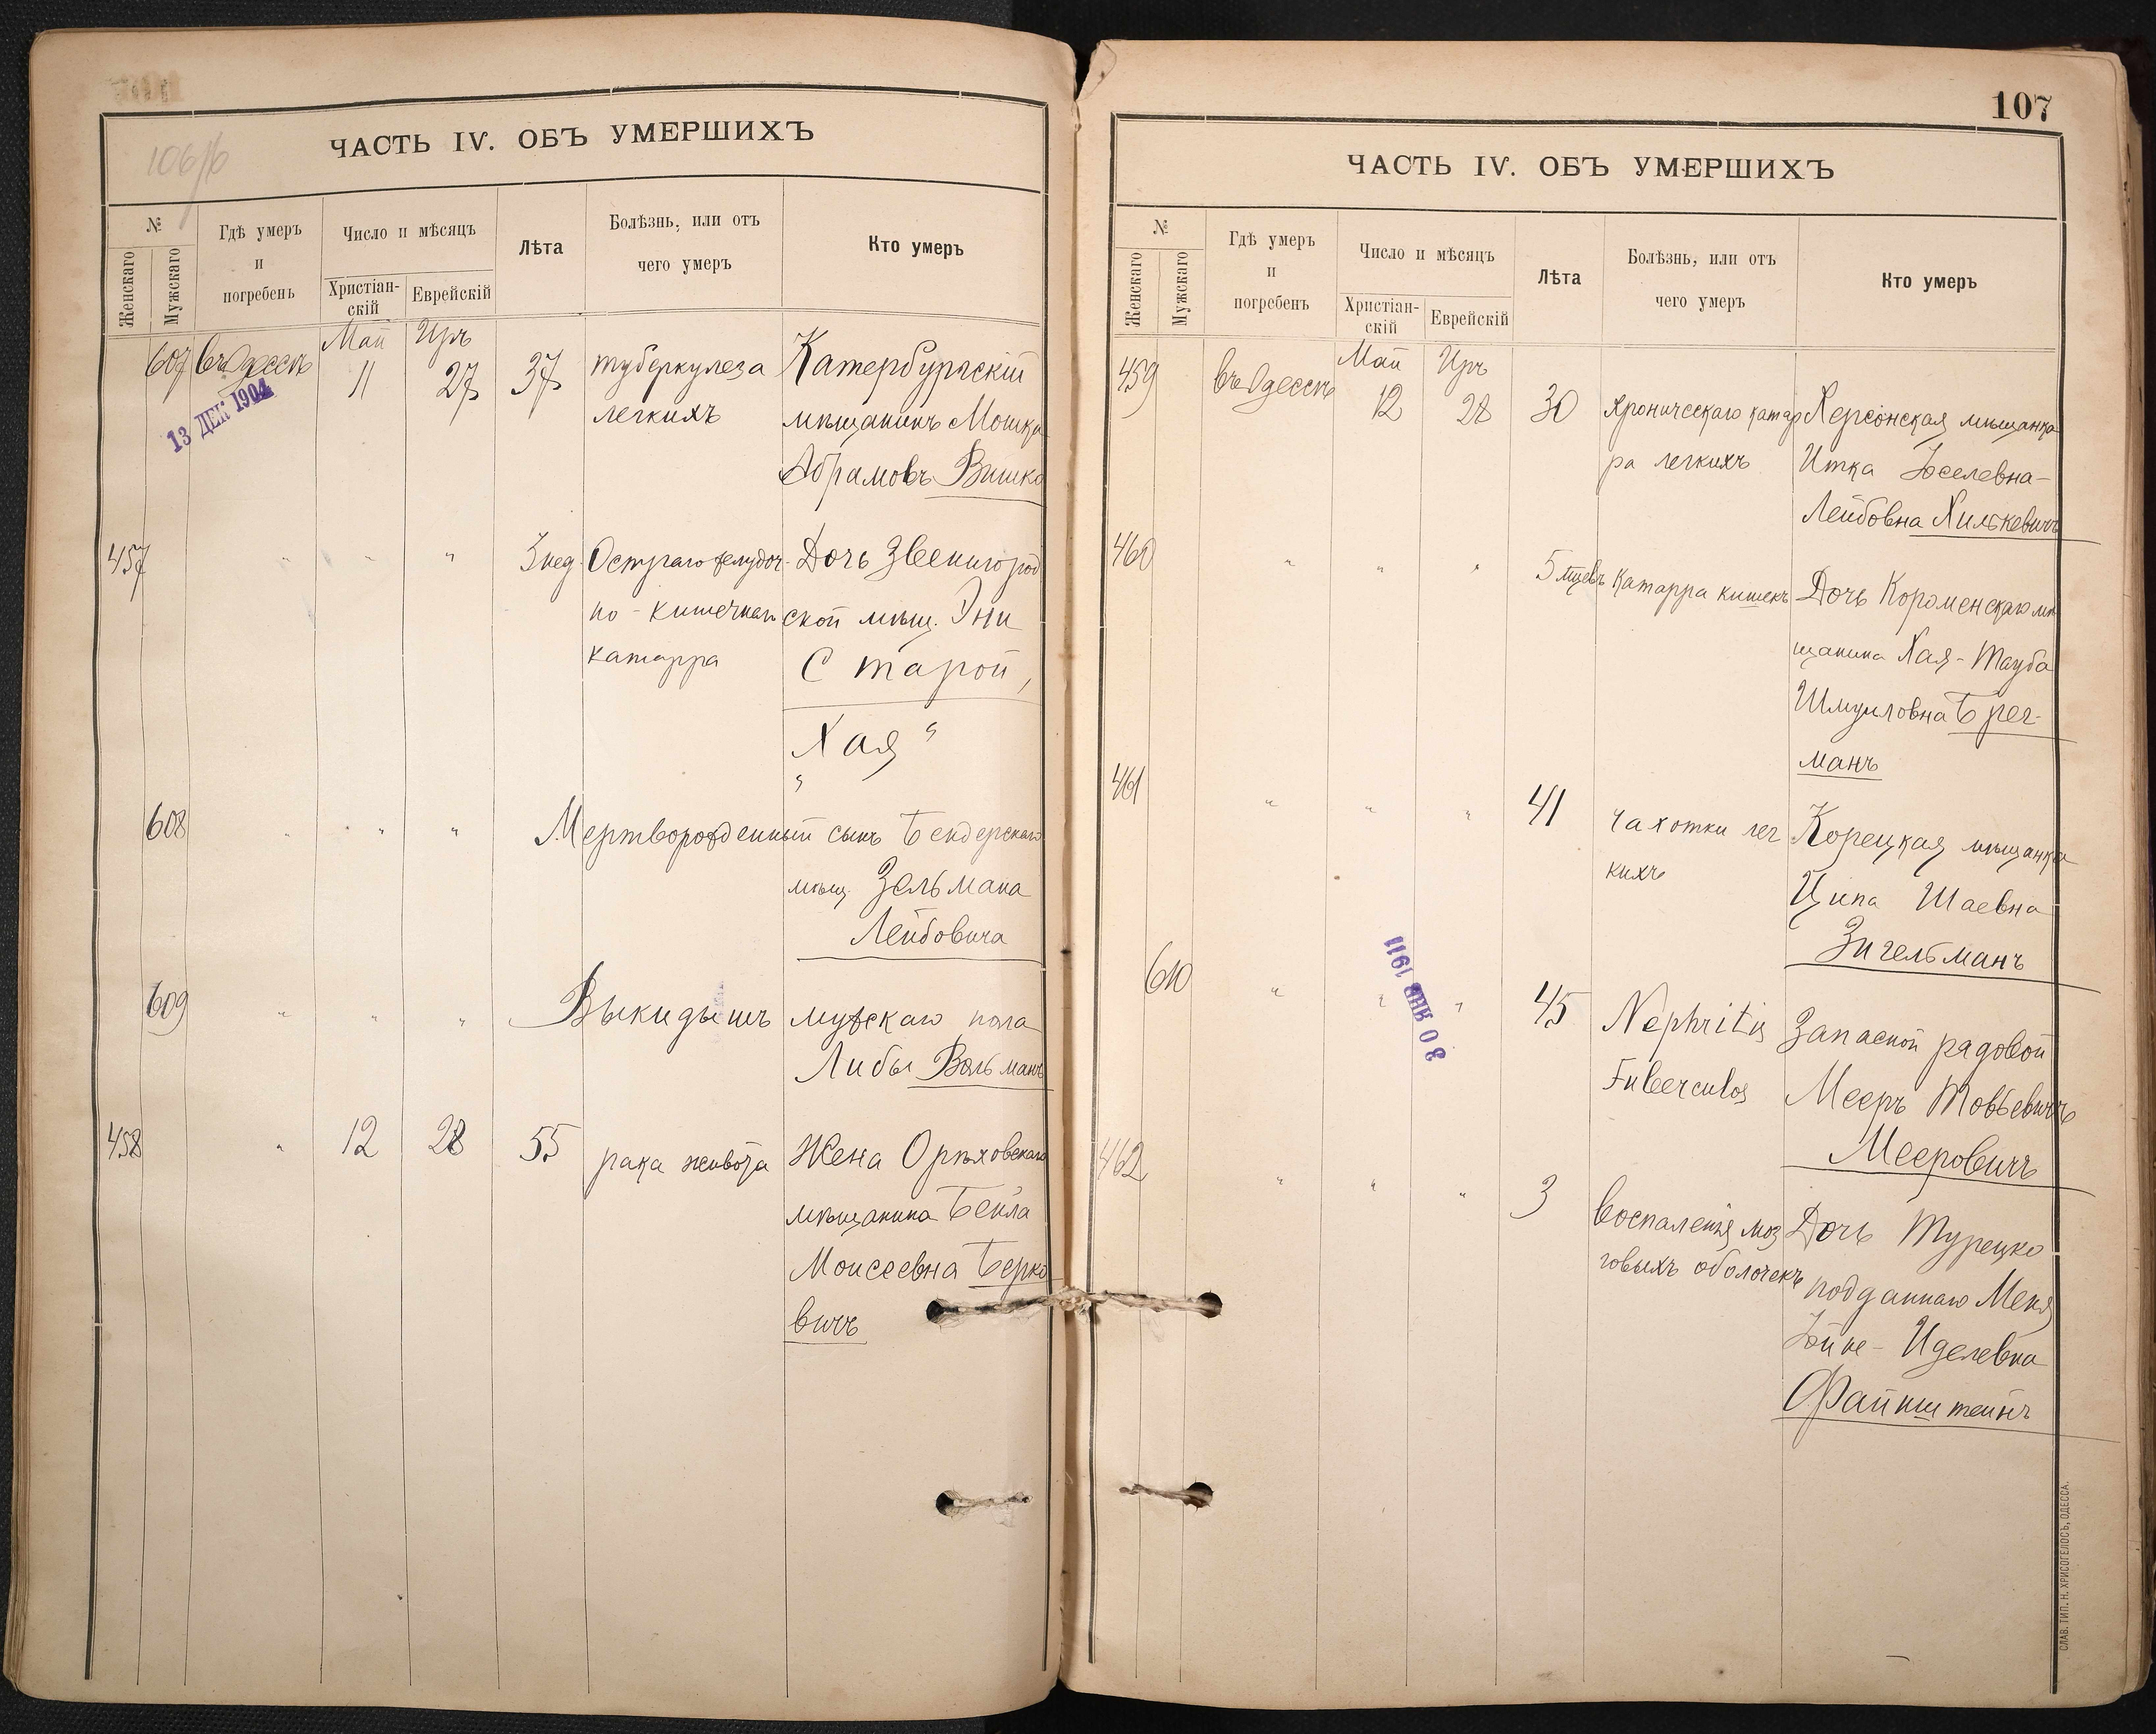 106/б
ЧАСТЬ IV. ОБЪ УМЕРШИХЪ
№
Женскаго
Мужскаго
Гдѣ умеръ
и
погребенъ
Число и мѣсяцъ
Христіан-
скій
Еврейскій
Лѣта
Болѣзнь, или отъ
чего умеръ
Кто умеръ
Май Иръ
607 въ Одессѣ 11 27 37 туберкулеза Катербургскій
легкихъ мѣщанинъ Мошка
Абрамовъ Вишко
13 ДЕК 1904
457 " " " 3 нед. Остраго желудоч- Дочь Звенигород
но-кишечнаго ской мѣщ. Эни
катарра Старой,
Хая "
"
608 " " " Мертворожденный сынъ Бендерскаго
мѣщ. Зельмана
Лейбовича
609 " " " Выкидышъ мужскаго пола
Либы Вольманъ
458 " 12 28 55 рака живота Жена Орѣховскаго
мѣщанина Бейла
Моисеевна Берко
вичъ
107
ЧАСТЬ IV. ОБЪ УМЕРШИХЪ
№
Женскаго
Мужскаго
Гдѣ умеръ
и
погребенъ
Число и мѣсяцъ
Христіан-
скій
Еврейскій
Лѣта
Болѣзнь, или отъ
чего умеръ
Кто умеръ
Май Иръ
459 въ Одессѣ 12 28 30 Хроническаго катар Херсонская мѣщанка
ра легкихъ Итка Іоселевна-
Лейбовна Хилькевичъ
460 " " " 5 мцевъ Катарра кишекъ Дочь Короменскаго мѣ
щанина Хая-Тауба
Шмуиловна Брег-
манъ
461 " " " 41 чахотки лег Корецкая мѣщанка
кихъ Ципа Шаевна
Зигельманъ
30 ЯНВ 1911
610 " " " 45 Nephritis Запасной рядовой
Tuberculos Мееръ Товьевичъ
Мееровичъ
462 " " " 3 воспаленія моз Дочь Турецко
говыхъ оболочекъ подданнаго Меня
Іойне-Иделевна
Файнштейнъ
СЛАВ. ТИП. Н. ХРИСОГЕЛОСЪ, ОДЕССА.